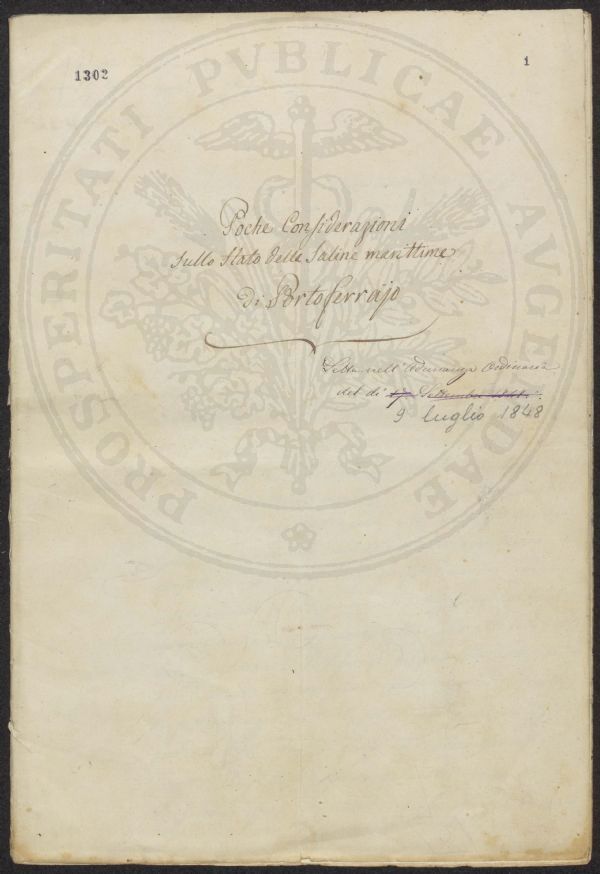 1302
1
PROSPERITATI PVBLICAE AVGENDAE
Poche Considerazioni
sullo Stato delle Saline marittime
di Portoferrajo
Letta nell'Adunanza Ordinaria
del di 17 Settembre 1848.
9 luglio 1848